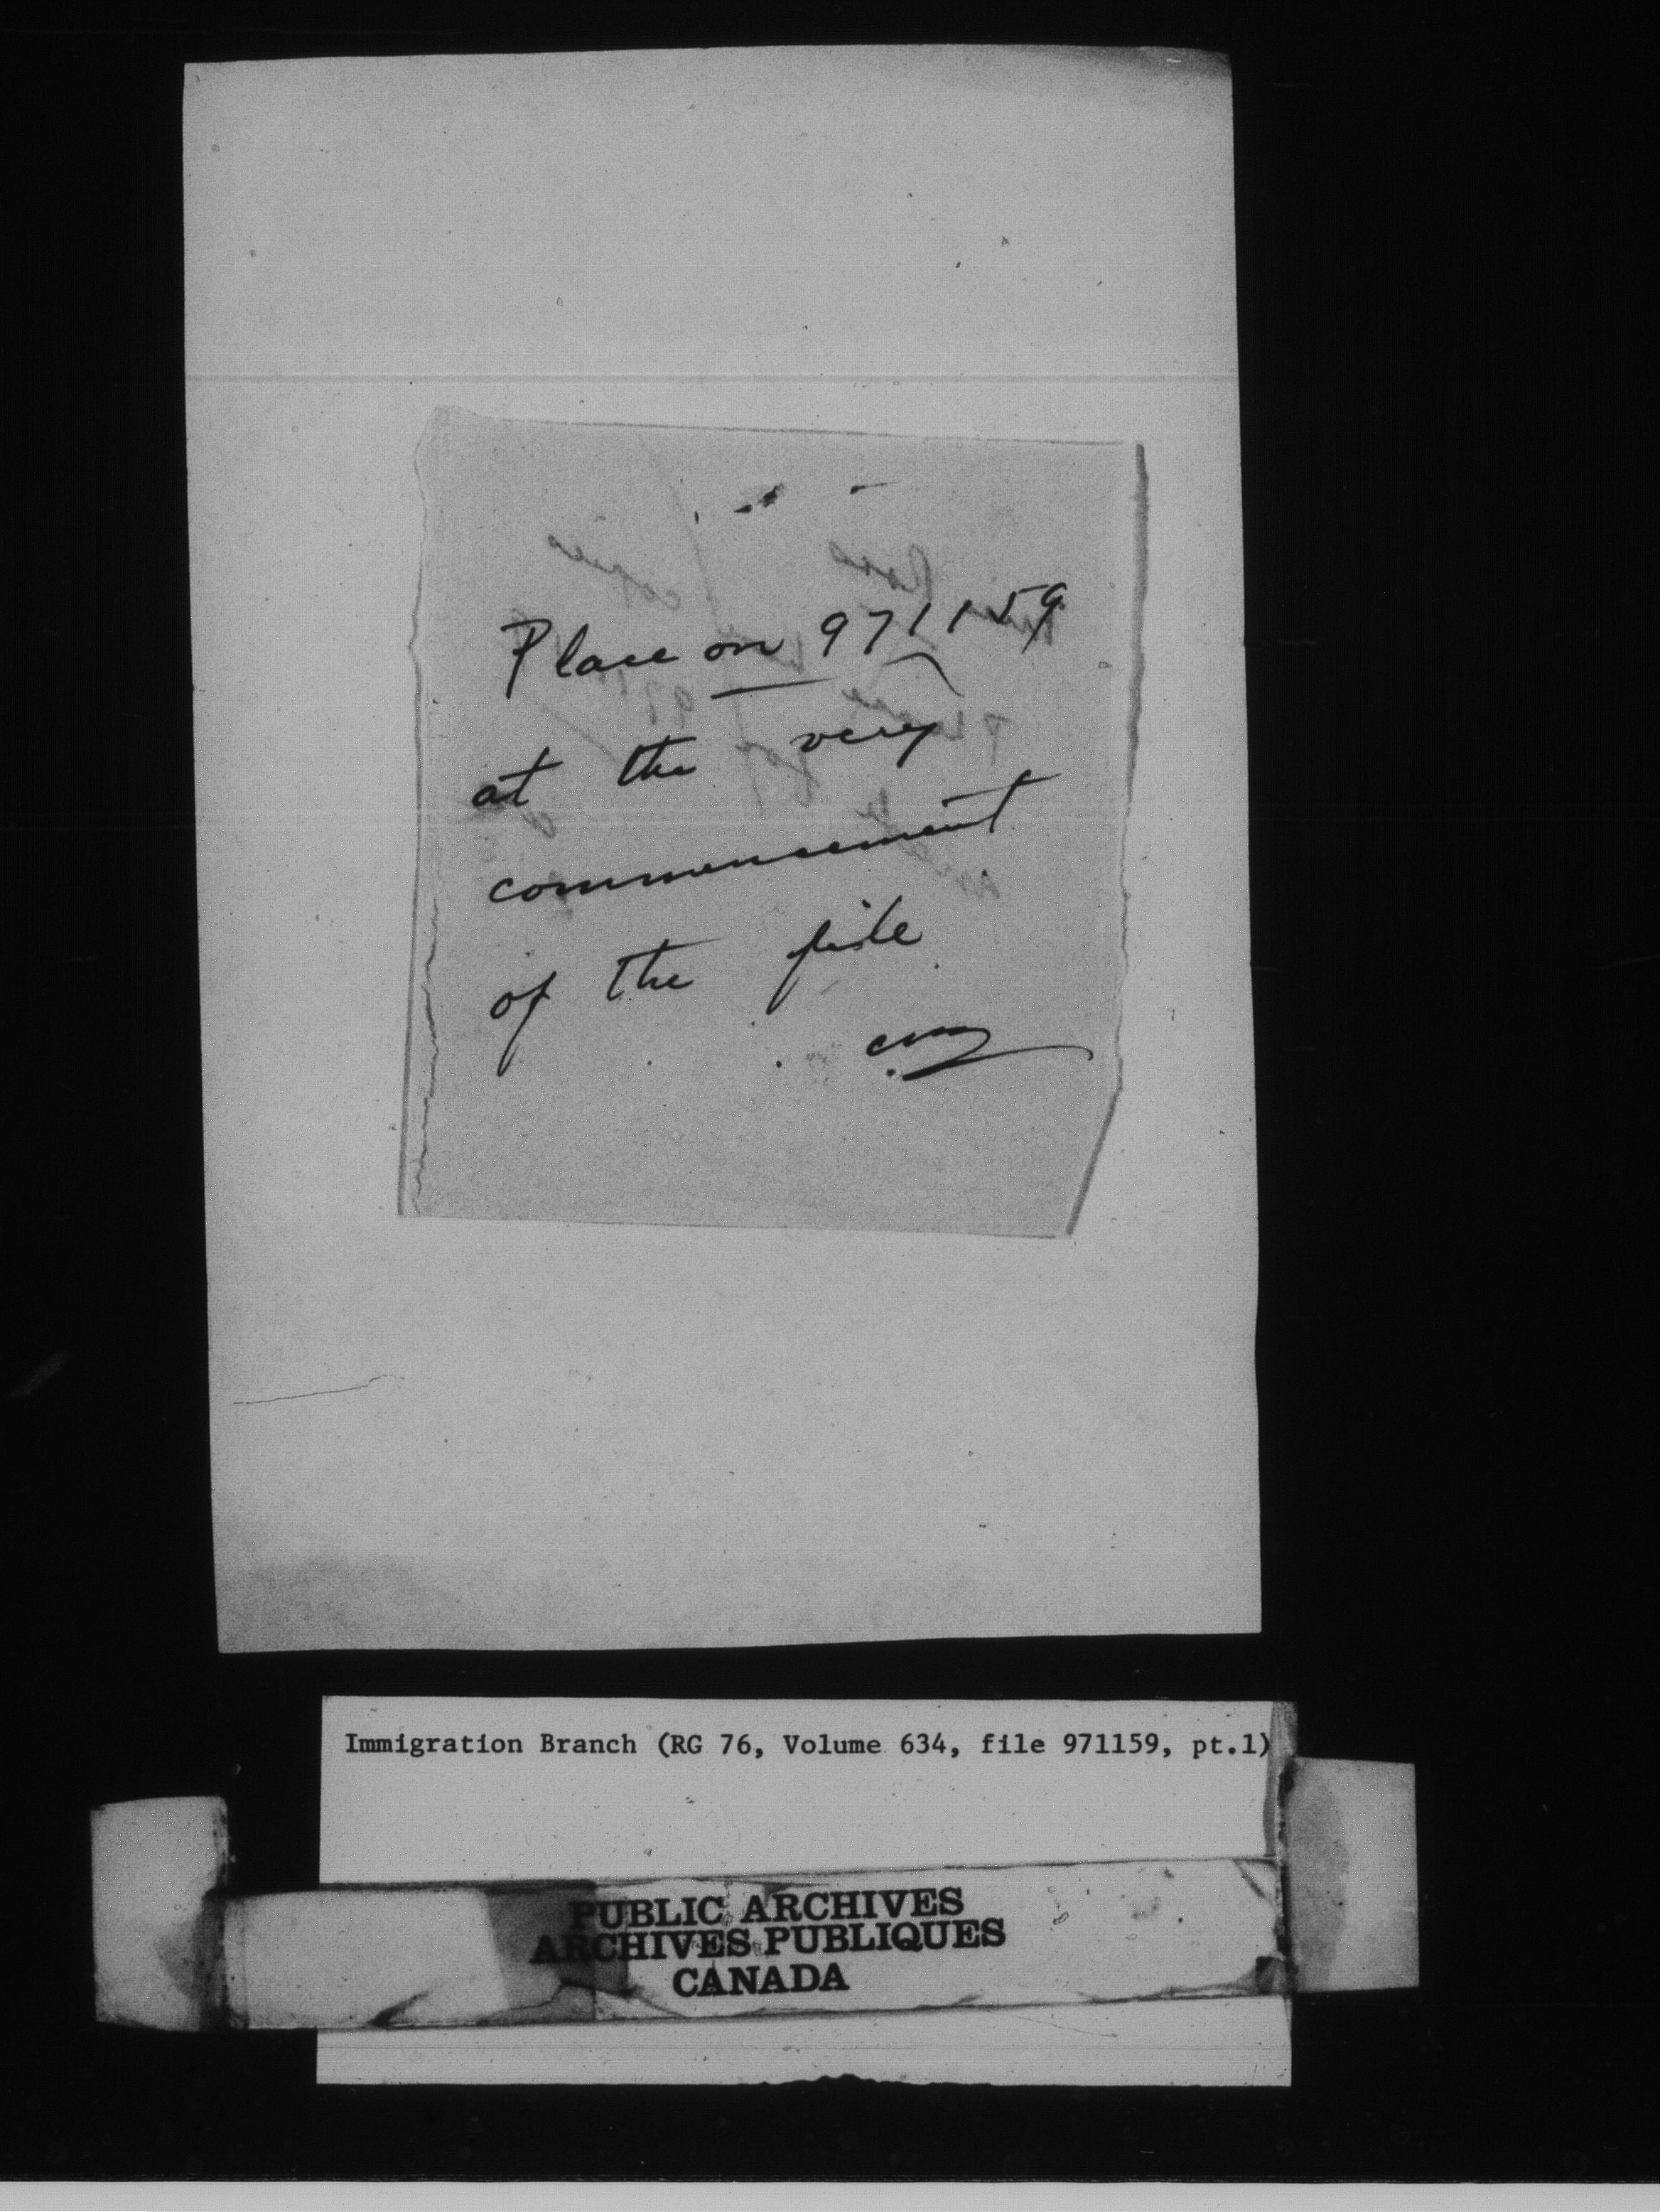 Place on 971159
at the very
commencement
of the file
Immigration Branch (RG 76, Volume 634, file 971159, pt.1)
PUBLIC ARCHIVES
ARCHIVES PUBLIQUES
CANADA